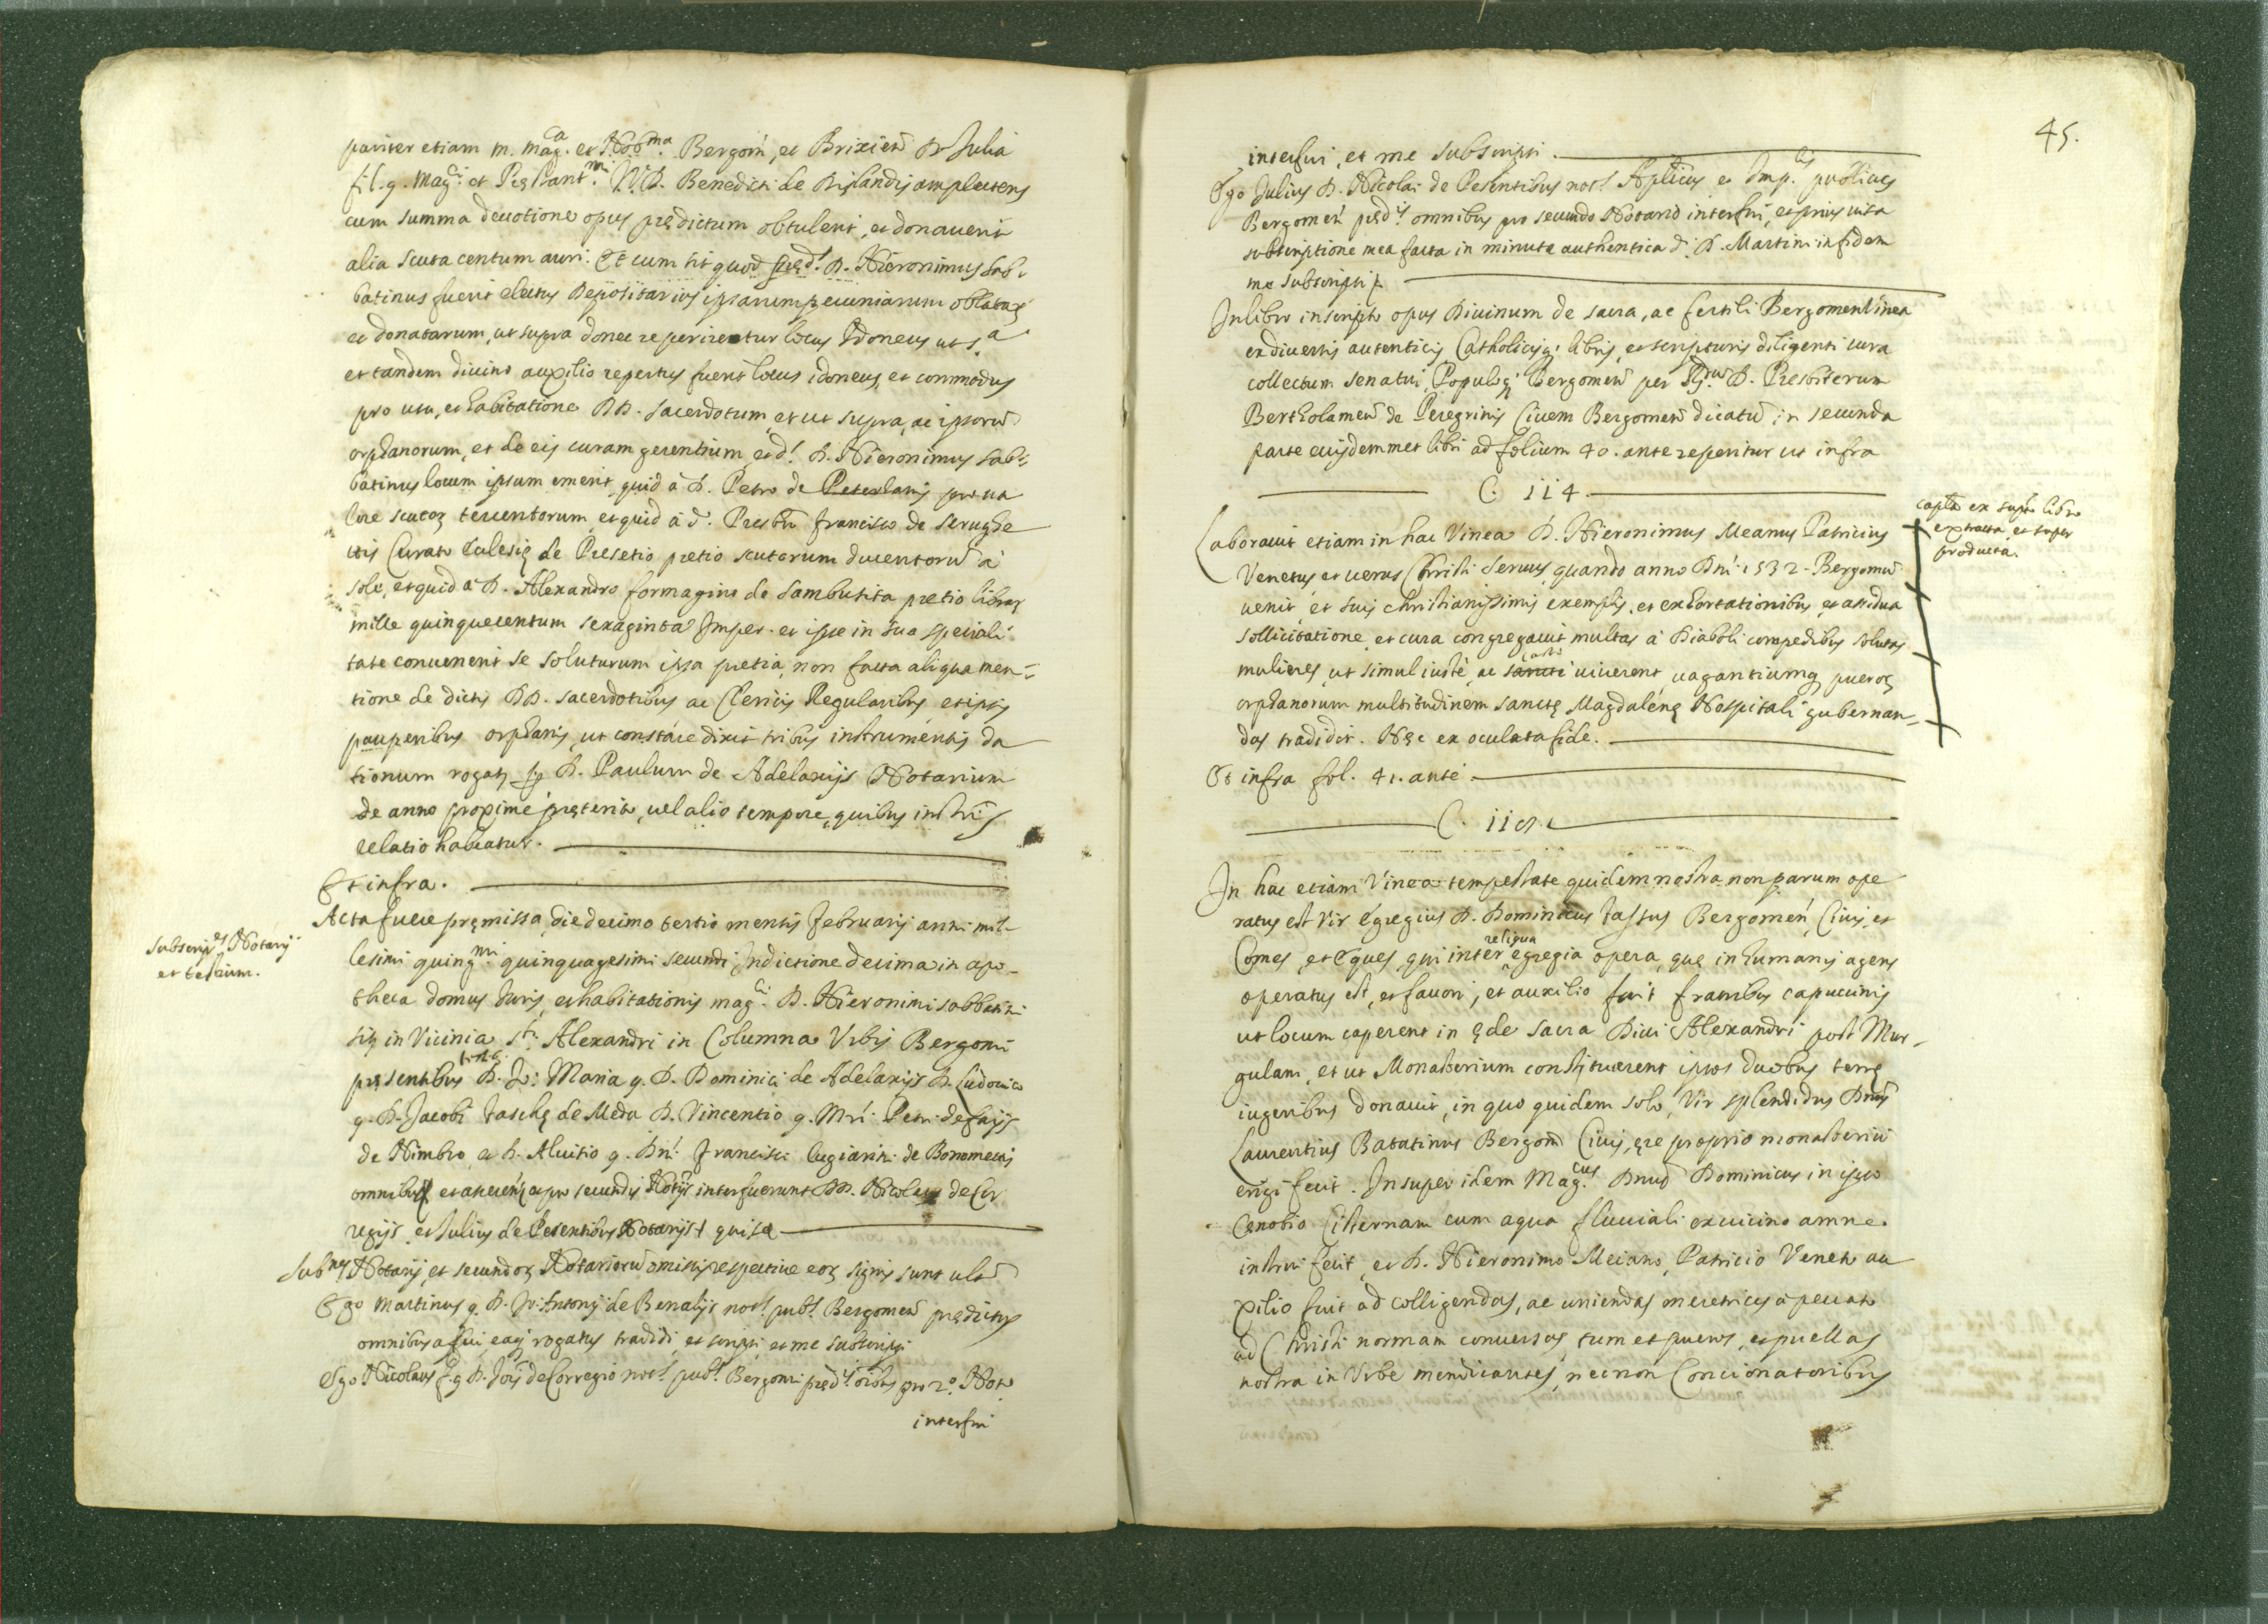 pariter etiam m. mag.ca et Nob.ma Bergom̄, et Brixieñ D. Julia
fil. q. mag.ci et Pręstant.mi V.I.D. Benedicti de amplectens
cum summa deuotione opus prędictum obtulerit, et donauerit
alia scuta centum auri. Et cum sit quod pręd.s D. Hieronimus Sab-
batinus fuerit electus Depositarius ipsarum pecuniarum oblataꝝ
et donatarum, ut supra donec reperiretur locus Idoneus ut s.a
et tandem diuino auxilio repertus fuerit locus idoneus, et commodus
pro usu, et habitatione DD. sacerdotum, et ut supra, ac ipsorū
orphanorum, et de eis curam gerentium, et d.s D. Hieronimus Sab-
batinus locum ipsum emerit, quid à D. Petro de pro ua
lore scutoꝝ tercentorum, et quid à d. Presb.ro Francisco de Serughe
ttis Curato Eclesię de Presetio pretio scutorum ducentorū à
sole, et quid à D. Alexandro formagino de Sambusita pretio libraꝝ
mille quinquecentum sexaginta Imper. et ipse in sua speciali
tate conuenerit se soluturum ipsa pretia, non facta aliqua men-
tione de dictis DD. sacerdotibus ac Clericis Regularibus, et ipsis
pauperibus orphanis, ut constare dixit tribus instrumentis da
tionum rogatis per D. Paulum de Adelaxijs Notarium
de anno proximè pręterito, uel alio tempore, quibus instr̄is
relatio habeatur.
Et infra.
Acta fuere pręmissa die decimo tertio mensis Februarij anni mil-
lesimi quing.mi quinquagesimi secundi Indictione decima in apo-
theca domus Iuris, et habitationis mag.ci D. Hieronimi Sabbatini
sitę in Vicinia S.ti Alexandri in Columna Vrbis Bergomi
pręsentibus testib. D. Io: Maria q. D. Dominici de Adelaxijs D. Ludouico
q. D. Jacobi Taschę de Meda D. Vincentio q. Mri. Petri de fatijs
de Nimbro, et D. Aluisio q. Dni. Francisci lugiarini de Bonomettis
omnibus et pro secundis Notijs interfuerunt DD. Nicolaus de Cor
regijs, et Julius de Pesentibus Notarijs qui se
Subnes Notarij, et secundoꝝ Notariorū omissis respectiue eoꝝ signis sunt
Ego Martinus q. D. Io: Antonij de Benalijs not.s pub.s Bergomeñ prędictis
omnibus affui, eaq; rogatus tradidi, et scripsi, et me subscripsi
Ego Nicolaus f. q. D. Jois de Corregio not.s pub.s Bergomi pręd.is oibus pro 2.o Noto
interfui
Subscrip.es Notarij
et testium.
45.
interfui, et me subscripsi.
Ego Julius D. Nicolai de Pesentibus not.s Aplicus et Imp.lis publicus
Bergomeñ pręd.is omnibus pro secundo Notario interfui, et prius uisa
subscriptione mea facta in minuta authentica d. D. Martini in fidem
me subscripsi
In libro inscripto opus Diuinum de sacra, ac fertili Bergomensi Vinea
ex diuersis autenticis Catholicisq; libris, et scripturis diligenti cura
collectum senatui, Populoq; Bergomeñ per D. Presbiterum
Bertholameū de Peregrinis Ciuem Bergomeñ dicatū in secunda
parte eiusdemmet libri ad folium 40. ante reperitur ut infra
C. 114.
Laborauit etiam in hac Vinea D. Hieronimus Meanus Patricius
Venetus, et uerus Christi seruus, quando anno Dn̄i 1532. Bergomū
uenit, et suis christianissimis exemplis, et exhortationibus, et assidua
sollicitatione, et cura congregauit multas à Diaboli compedibus solutas
mulieres, ut simul iustè, ac sancte castè uiuerent, uagantiumq; pueroꝝ
orphanorum multitudinem sanctę Magdalenę Hospitali gubernan-
das tradidit. Hęc ex oculata fide.
Et infra fol. 41. ante
C.
In hac etiam Vinea tempestate quidem nostra non parum ope
ratus est Vir Egregius D. Dominicus Tassus Bergomeñ Ciuis, et
Comes, et Eques, qui inter reliqua egregia opera, quę in humanis agens
operatus est, et fauori, et auxilio fuit fratribus capuccinis
ut locum caperent in ęde sacra Diui Alexandri post Mur-
gulam, et ut Monasterium constituerent ipsos duobus terrę
iugeribus donauit, in quo quidem solo, Vir splendidus Dnus
Laurentius Batatinus Bergom̄ Ciuis, ęre proprio monasteriū
erigi fecit. Insuper idem Mag.cus Dnus Dominicus in ipso
Cenobio Cisternam cum aqua fluuiali ex uicino amne
instrui fecit, et D. Hieronimo Meiano, Patricio Veneto au
xilio fuit ad colligendas, ac uniendas meretrices à peccato
ad Christi normam conuersas, tum et pueros, et puellas
nostra in Vrbe mendicantes, necnon Concionatoribus
capta ex sup.to libro
extracta, et super
producta.